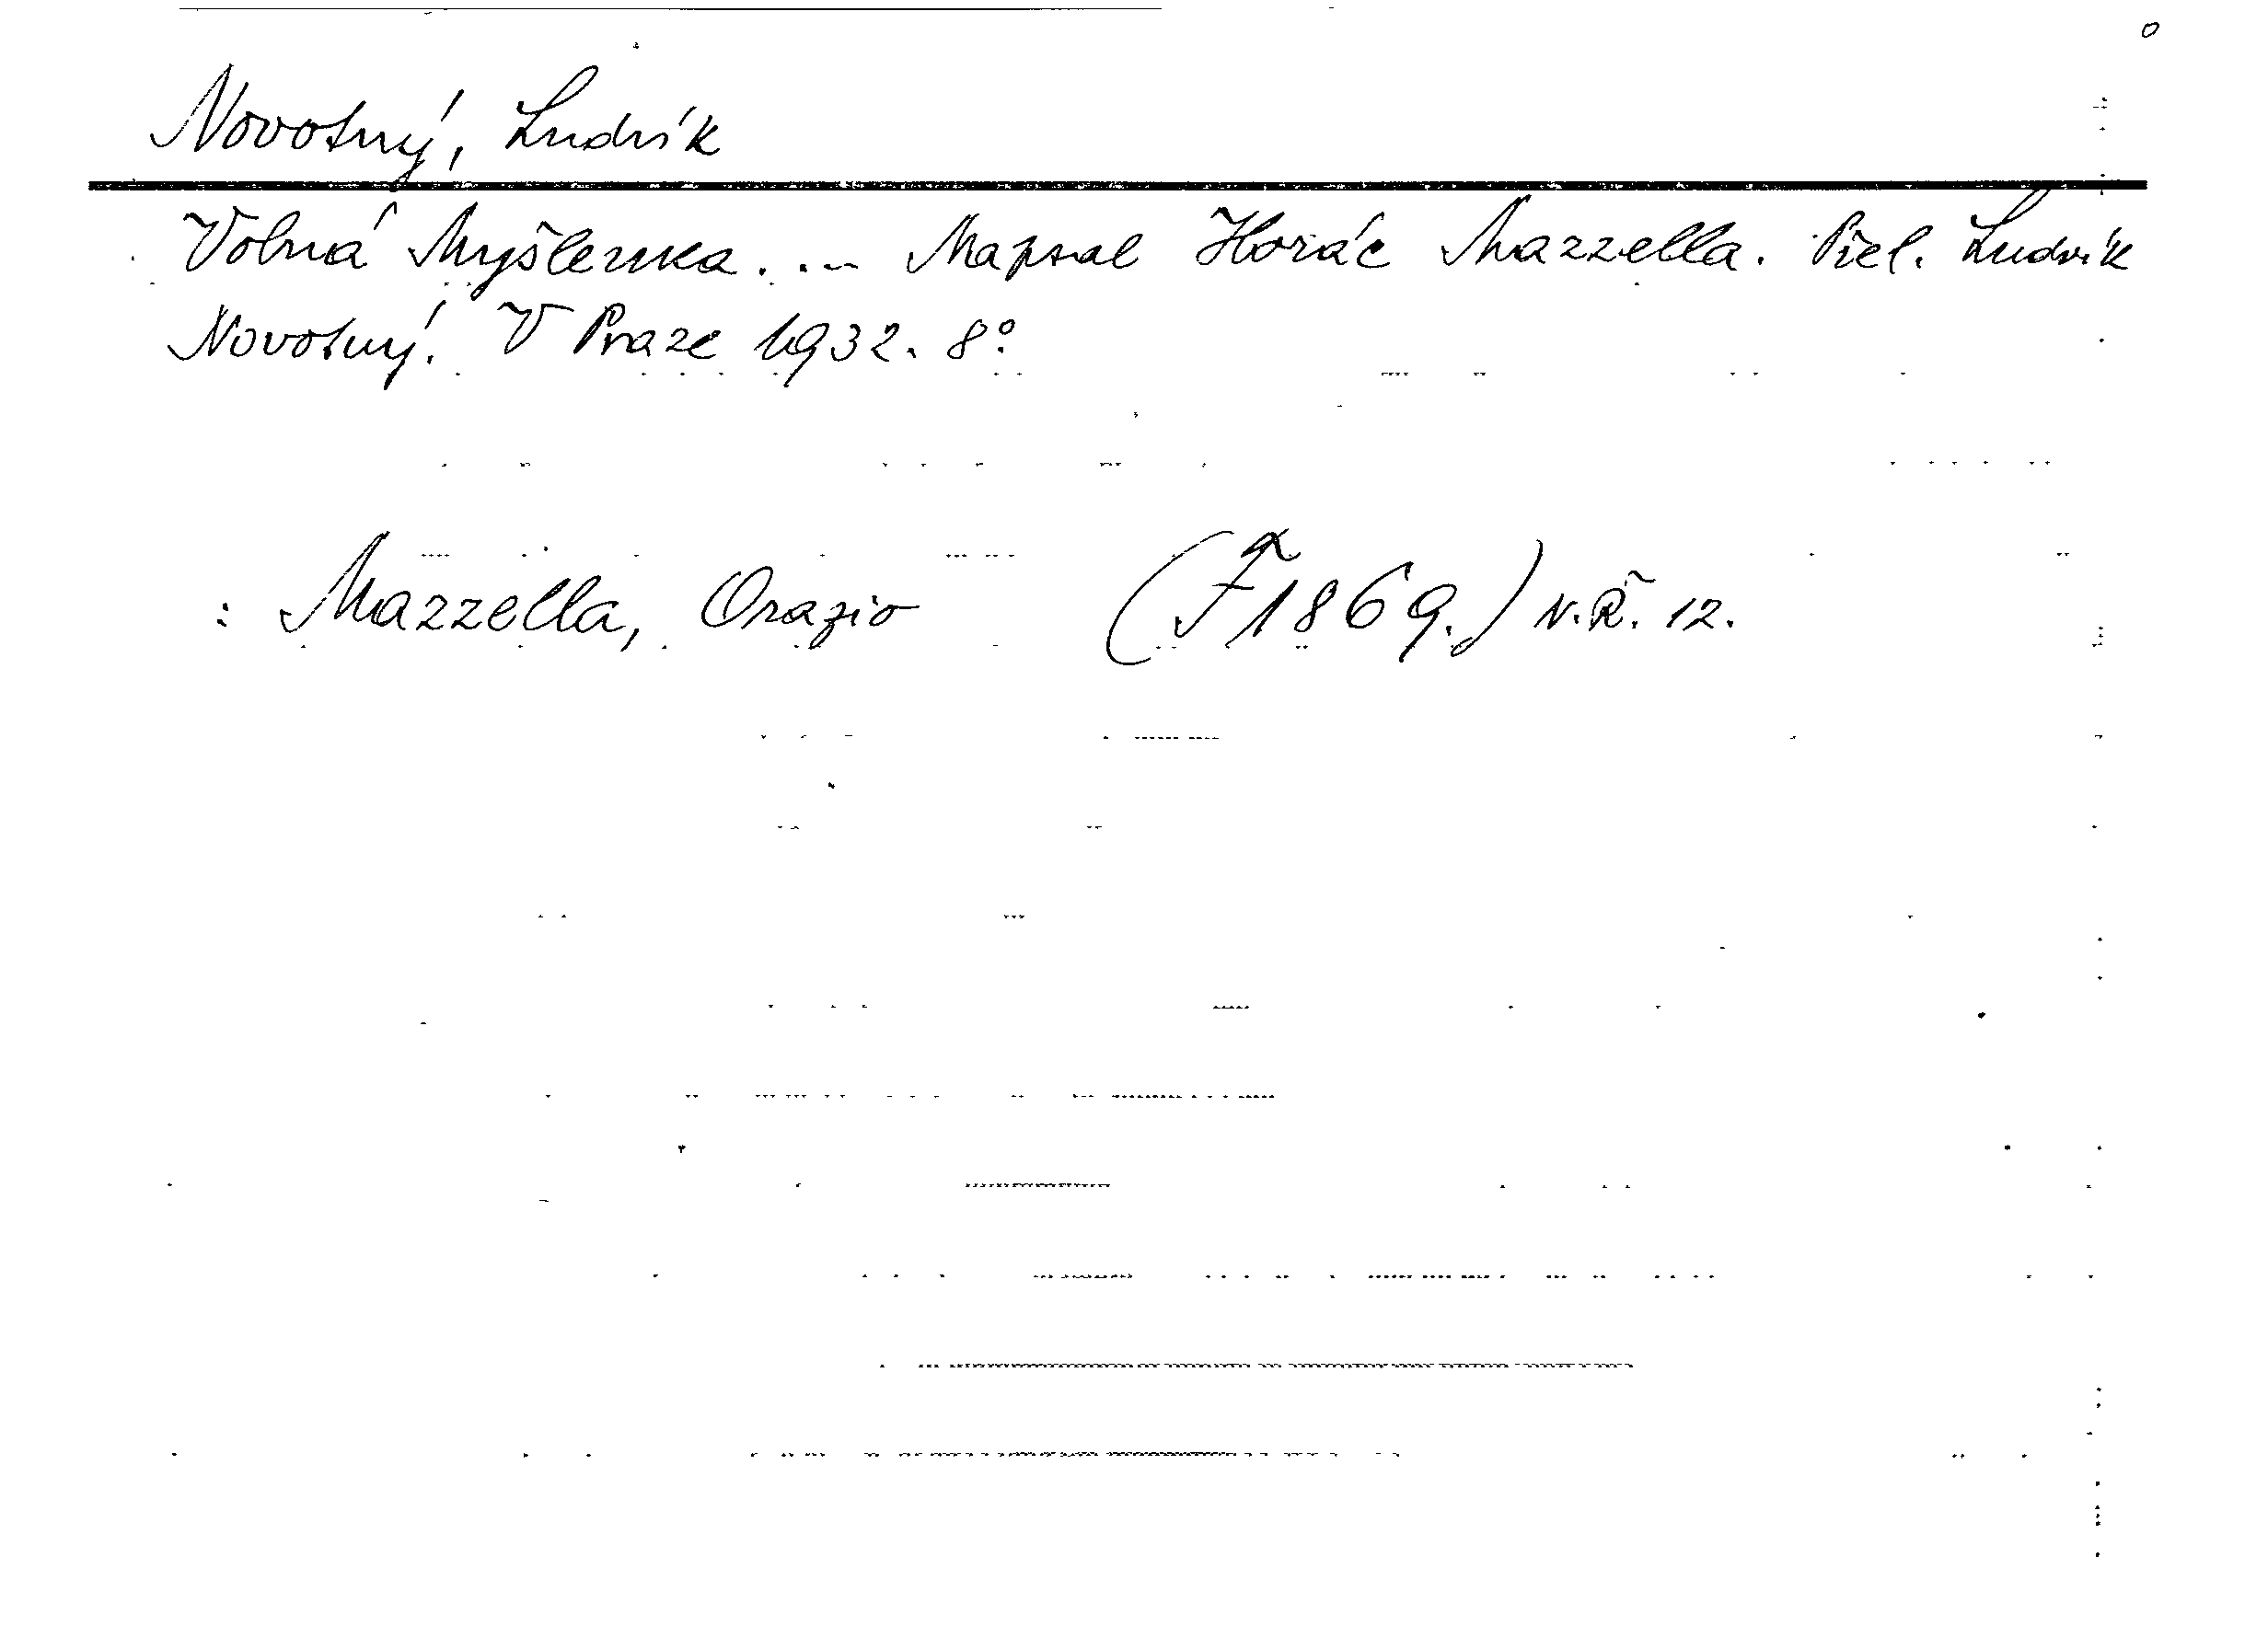 Novotný, Ludvík
Volná Myšlenka. ... Napsal Horác Mazzella. Přel. Ludvík
Novotný. V Praze 1932. 8°.
: Mazzella, Orazio (F 1869.) N.Ř. 12.